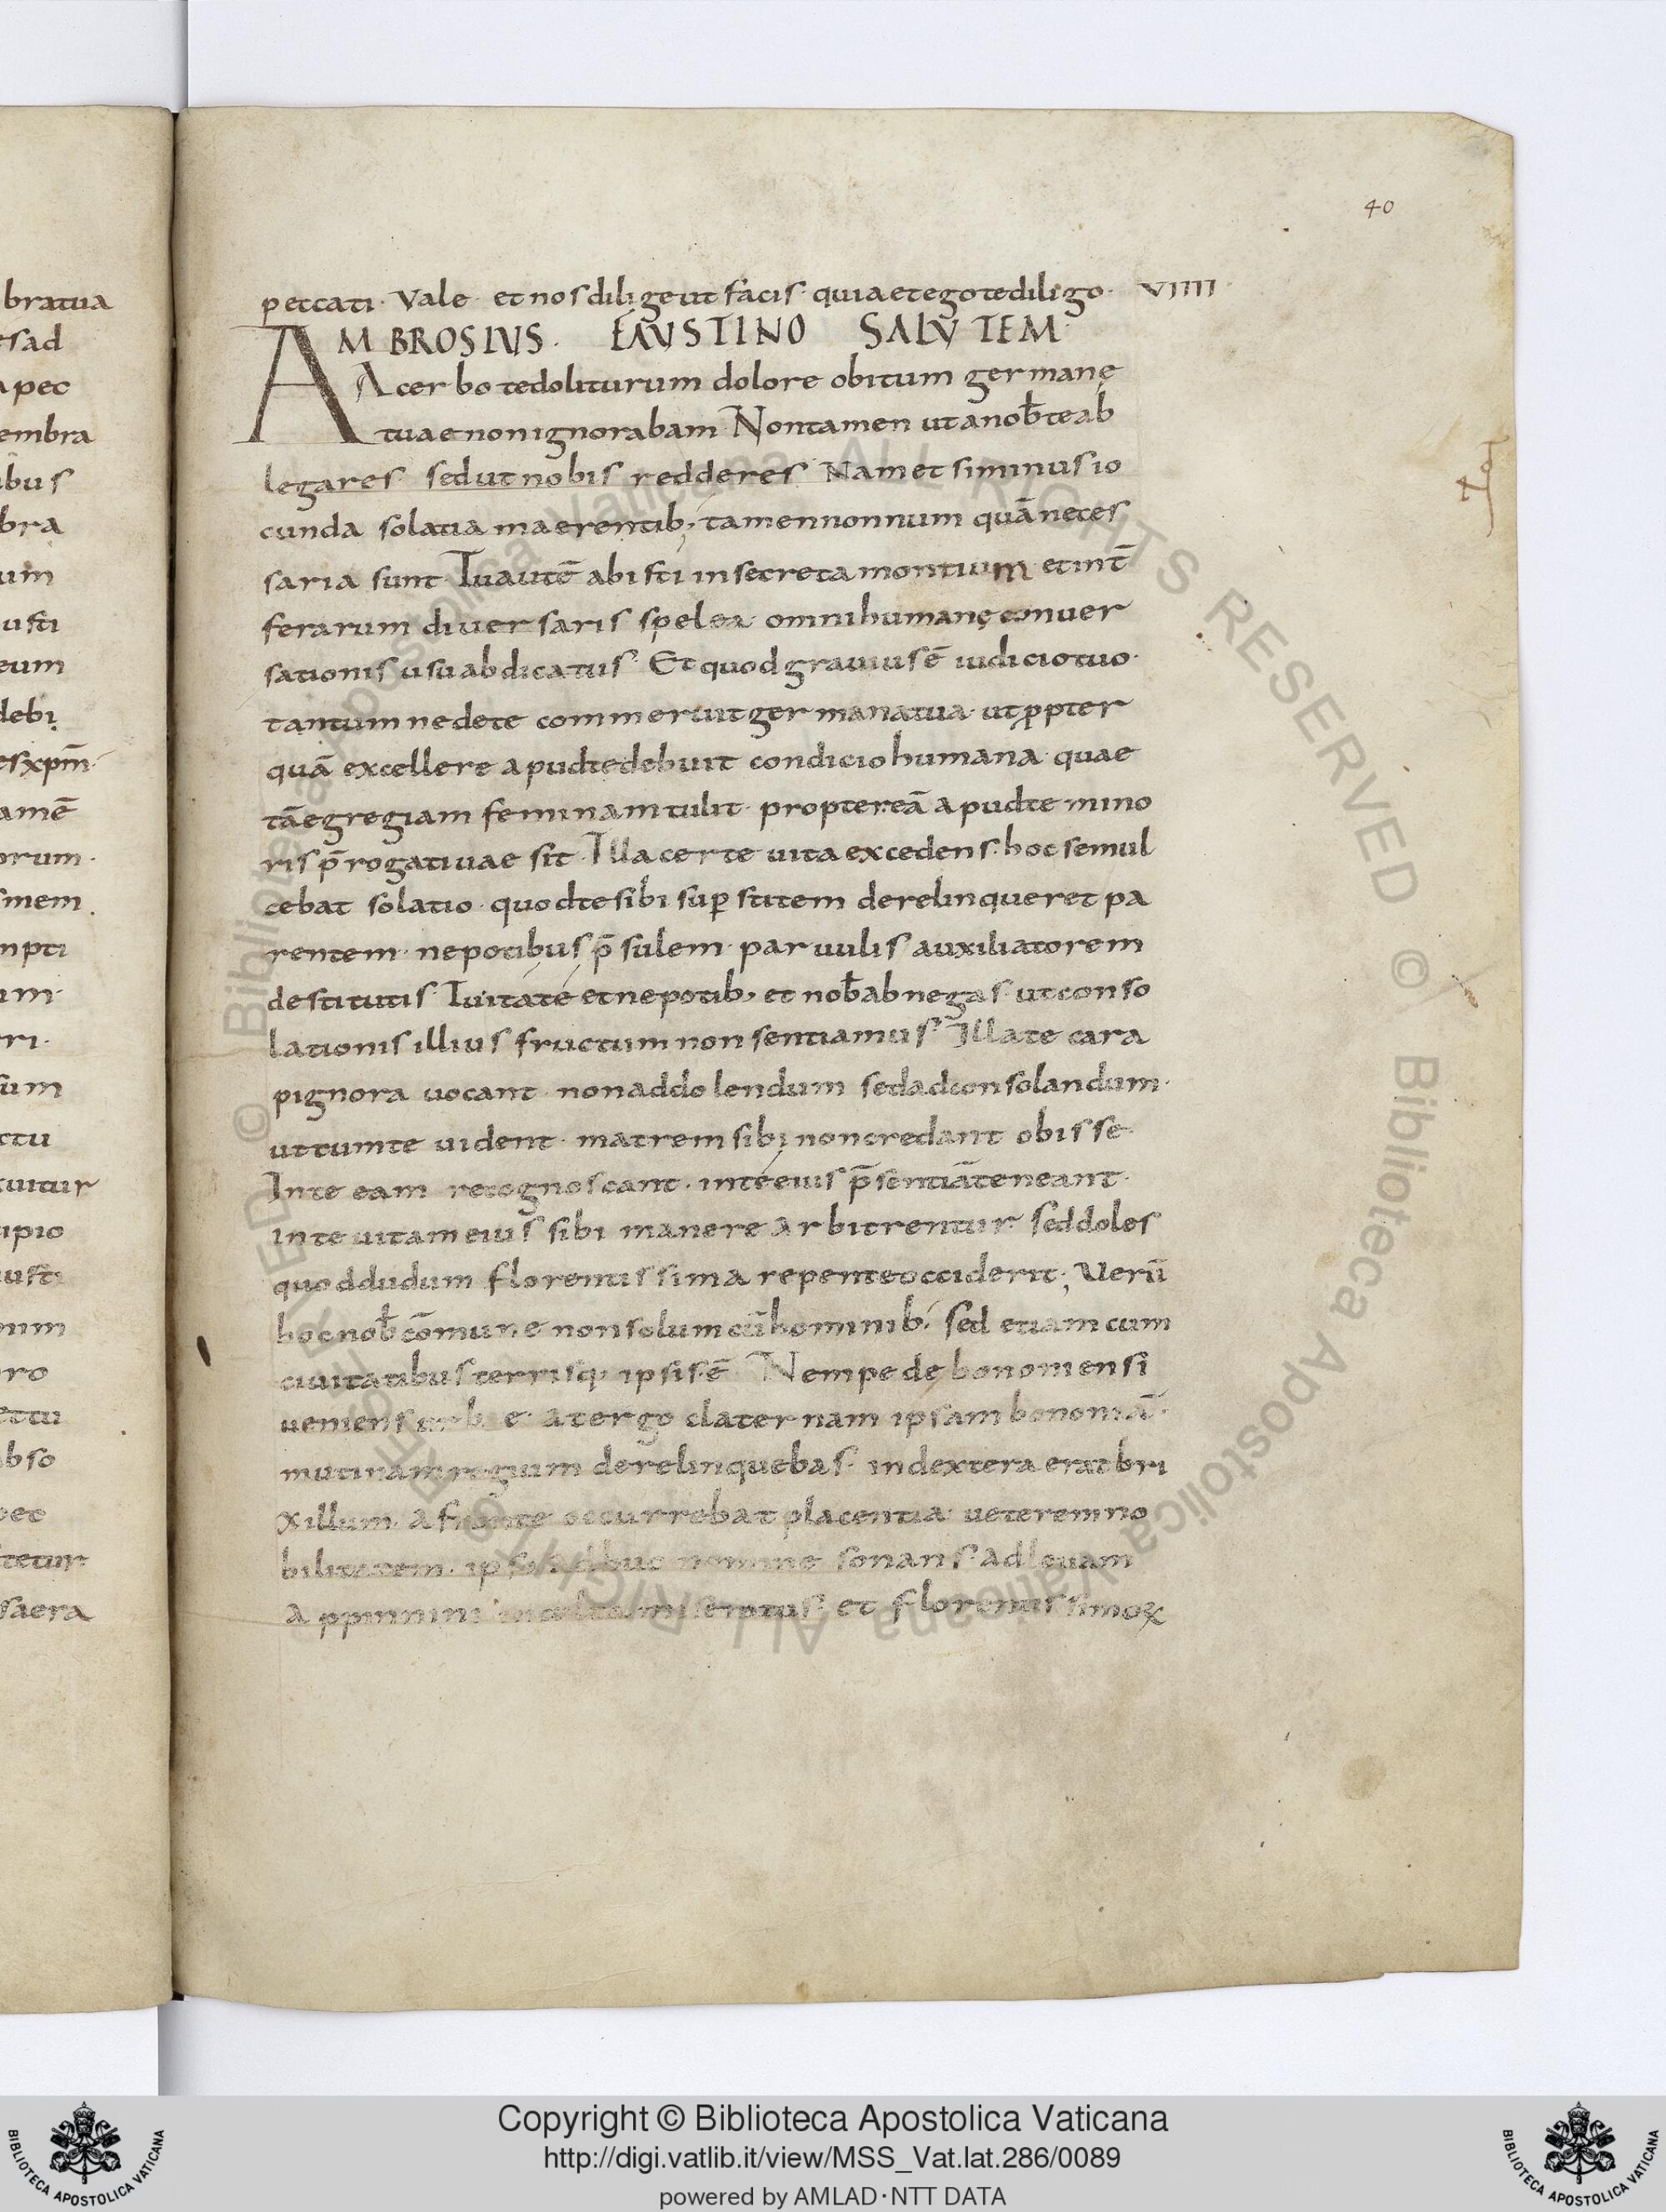 40
peccati · Vale · et nos dilige ut facis · quia et ego te diligo · VIIII ·
AMBROSIUS · FAUSTINO SALUTEM ·
Acerbo te doliturum dolore obitum germanę
tuae non ignorabam Non tamen ut a nob̄ te ab
legares sed ut nobis redderes · Nam et si minus io
cunda solatia maerentib; tamen nonnum quā neces
saria sunt · Tu autē abisti in secreta montium et int̄
ferarum diversaris spelea · omni humanę conuer
sationis usu abdicatus · Et quod gravius ē iudicio tuo ·
tantum ne de te commeruit germana tua · ut ꝓpter
quā excellere apud te debuit condicio humana · quae
tā egregiam feminam tulit · propter eā apud te mino
ris p̄rogativae sit · Illa certe vita excedens · hoc se mul
cebat solatio · quod te sibi sup̱stitem derelinqueret pa
rentem · nepotibus p̄sulem · parvulis auxiliatorem
destitutis · Tu ita te et nepotib; et nob̄ abnegas · ut conso
lationis illius fructum non sentiamus · Illa te cara
pignora vocant · non ad dolendum sed ad consolandum ·
ut tum te vident · matrem sibi non credant obisse ·
In te eam recognoscant · in te eius p̄sentiā teneant ·
in te vitam eius sibi manere arbitrentur · sed doles
quod dudum florentissima repente occiderit; Verū
hoc nob̄ cōmune non solum cū hominib; sed etiam cum
civitatibus terrisq; ipsis ē Nempe de bononiensi
veniens urbe · a tergo claternam ipsam bononiā ·
mutinam regium derelinquebas · in dextera erat bri
xillum · a fronte occurrebat placentia · veterem no
bilitatem · ipso adhuc nomine sonans · ad levam
appinnini inculta miseratus · et florentissimoꝝ
bratua
sad
apec
embra
ibus
bra
um
usti
eum
debi
esxpm̄
amē
orum ·
mem
mpti
um ·
ri ·
sum
ctu
tuitur
ipio
usti
nim
ro
ettu
bso
oec
tetur
saera
Copyright © Biblioteca Apostolica Vaticana
http://digi.vatlib.it/view/MSS_Vat.lat.286/0089
powered by AMLAD·NTT DATA
BIBLIOTECA APOSTOLICA VATICANA
BIBLIOTECA APOSTOLICA VATICANA
© Biblioteca Apostolica Vaticana ALL RIGHTS RESERVED © Biblioteca Apostolica Vaticana ALL RIGHTS RESERVED